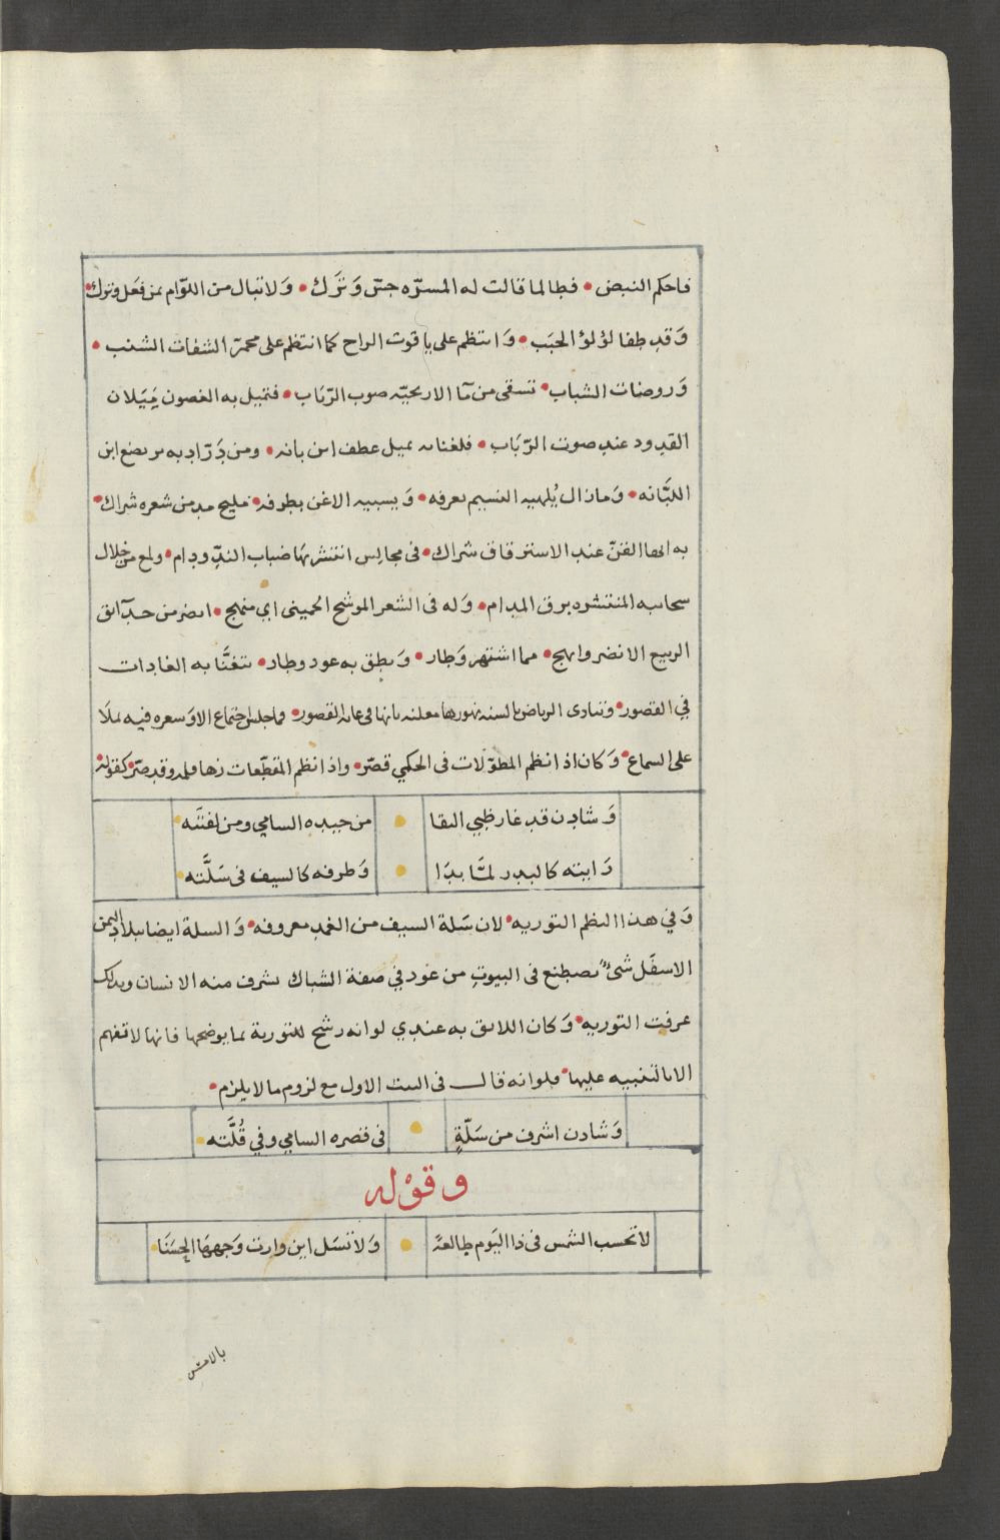 فاحكم النبض • فطالما قالت له المسرّه جسّ وَتَرَك • وَلا تبال من اللوّام بمن فعل وترك •
وَقد طفا لؤلؤ الحبَب • وَانتظم على ياقوت الراح كما انتظم على محمرّ الشفات الشنب •
وَروضات الشباب • تسقى من مآ الاريحيّه صوب الرّبَاب • فتميل به الغصون مَيَلان
القدود عند صوت الرّبَاب • فلغنائه يميل عطف ابن بانه • ومن دَرّ ادبه يرتضع ابن
اللبَّانه • وَمازال يُلهيه النسيم بعرفه • وَيسبيه الاغن بطرفه • مليح مد من شعره شراك •
به ايها الفنّ عند الاسترقاق شراك • في مجالِس انتشر بهَا ضباب الندّ ودام • ولمع من خلال
سحابه المنتشره برق المدام • وَله في الشعر الموشح الحميني اي منهج • انضر من حدآئق
الربيع الانضر وابهج • مما اشتهر وَطار • وَنطق به عود وطار • تتغنَّا به الغادات
في القصور • وتنادى الرياض بالسنه زهورها معلنه بانها في غايه القصور • فما جلس اجتماع الا وَسعره فيه لملَا
على السماع • وَكان اذا نظم المطوّلات في الحكمي قصّر • واذا نظم المقطّعات زها وقد صرّ • كقوله
وَشادن قد غار ظبي النقا • من جيده السامي ومن لفتَته
رَايته كالبدر لمَّا بدَا • وَطرفه كالسيف في سَلَّته
وَفي هذا النظم التوريه • لان سَلة السيف من الغمد معروفه • وَالسلة ايضا ببلاد اليمن
الاسفَل شئٌ يصطنع في البيوت من عَود في صفة الشباك يشرف منه الانسان وبذلك
عرفت التوريه • وَكان اللائق به عندي لو انه رشح للتورية بما يوضحها فانها لا تفهم
الا بالتنبيه عليها • فلو انه قال في البيت الاول مع لزوم ما لا يلزم •
وَشادن اشرف من سَلّةٍ • في قصره السامي وفي قُلَّته
وقوْله
لا تحسب الشمس في ذا اليَوم طالعةً • وَلا تسَل اين وارت وَجههَا الحِسَنَا
بالامس